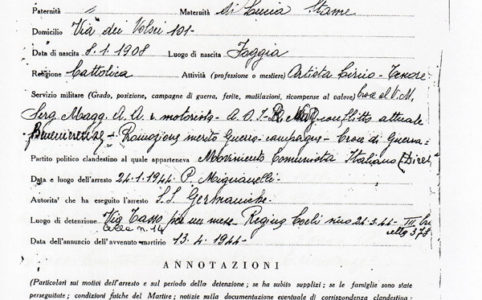 Paternità " Maternità di Lucia Stame
Domicilio Via dei Volsci 101-
Data di nascita 8.1.1908 Luogo di nascita Foggia
Religione Cattolica Attività (professione o mestiere) Artista Lirico - Tenore
Servizio militare (Grado, posizione, campagne di guerra, ferite, mutilazioni, ricompense al valore) Croce al V.M.
Serg. Magg. A.A. motorista - A.O.I. conflitto attuale
Promozione merito Guerra - campagna - Croce di Guerra -
Partito politico clandestino al quale apparteneva Movimento Comunista Italiano
Data e luogo dell'arresto 24-1-1944 P. Mignanelli
Autorita' che ha eseguito l'arresto S.S. Germaniche
Luogo di detenzione Via Tasso per un mese Regina Coeli sino 24-3-44 - III
cella n. 14 cella 378
Data dell'annuncio dell'avvenuto martirio 13.4.1944 -
ANNOTAZIONI
(Particolari sui motivi dell'arresto e sul periodo della detenzione; se ha subito supplizi; se le famiglie sono state
perseguitate; condizioni fisiche del Martire; notizie sulla documentazione eventuale di corrispondenza clandestina;